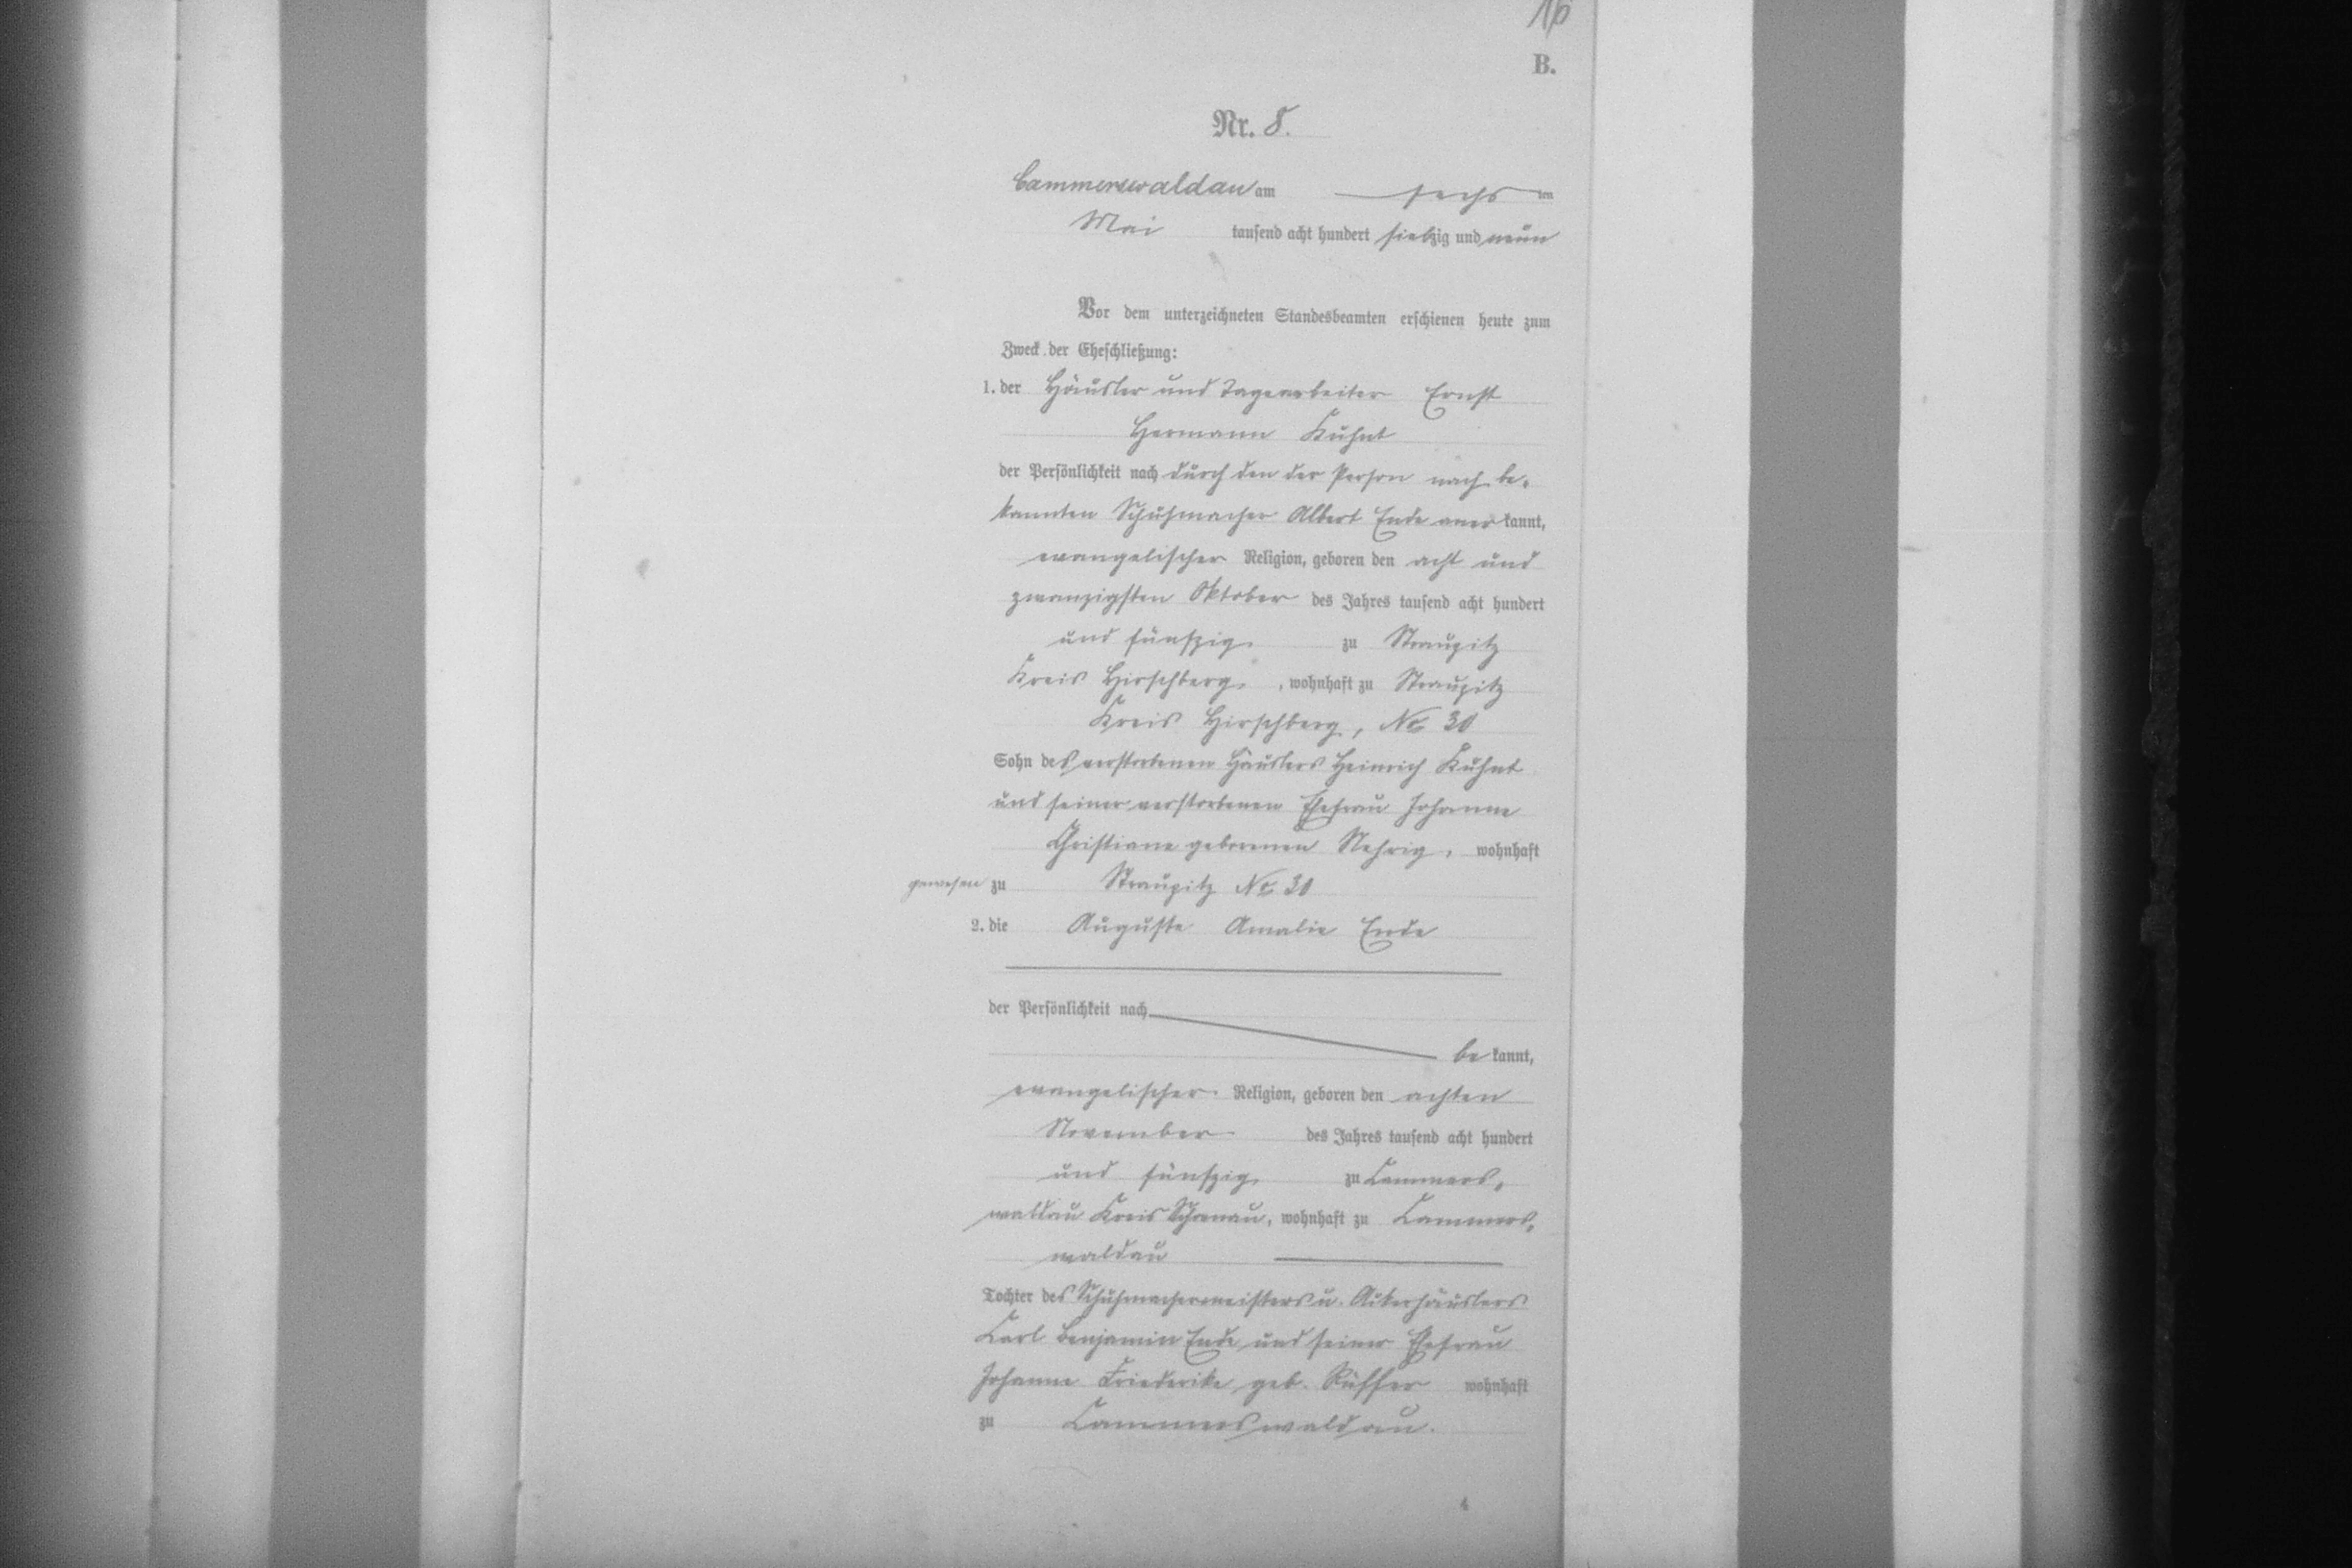 16
B.
Nr. 8.
Cammerswaldau am sechsten
Mai tausend acht hundert siebzig und neun
Vor dem unterzeichneten Standesbeamten erschienen heute zum
Zweck der Eheschließung:
1. der Häusler und Tagearbeiter Ernst
Hermann Kuhnt
der Persönlichkeit nach durch den der Person nach be-
kannten Schuhmacher Albert Ende anerkannt,
evangelischer Religion, geboren den acht und
zwanzigsten Oktober des Jahres tausend acht hundert
und fünfzig zu Straupitz
Kreis Hirschberg, wohnhaft zu Straupitz
Kreis Hirschberg, No 30
Sohn des verstorbenen Häuslers Heinrich Kuhnt
und seiner verstorbenen Ehefrau Johanne
Christiane geborenen Nehrig, wohnhaft
gewesen zu Straupitz No 30
2. die Auguste Amalie Ende
der Persönlichkeit nach
bekannt,
evangelischer Religion, geboren den achten
November des Jahres tausend acht hundert
und fünfzig, zu Cammers-
waldau Kreis Schönau, wohnhaft zu Cammers-
waldau
Tochter des Schuhmachermeisters u. Ackerhäuslers
Carl Benjamin Ende und seiner Ehefrau
Johanne Friederike geb. Rüffer wohnhaft
zu Cammerswaldau.
4